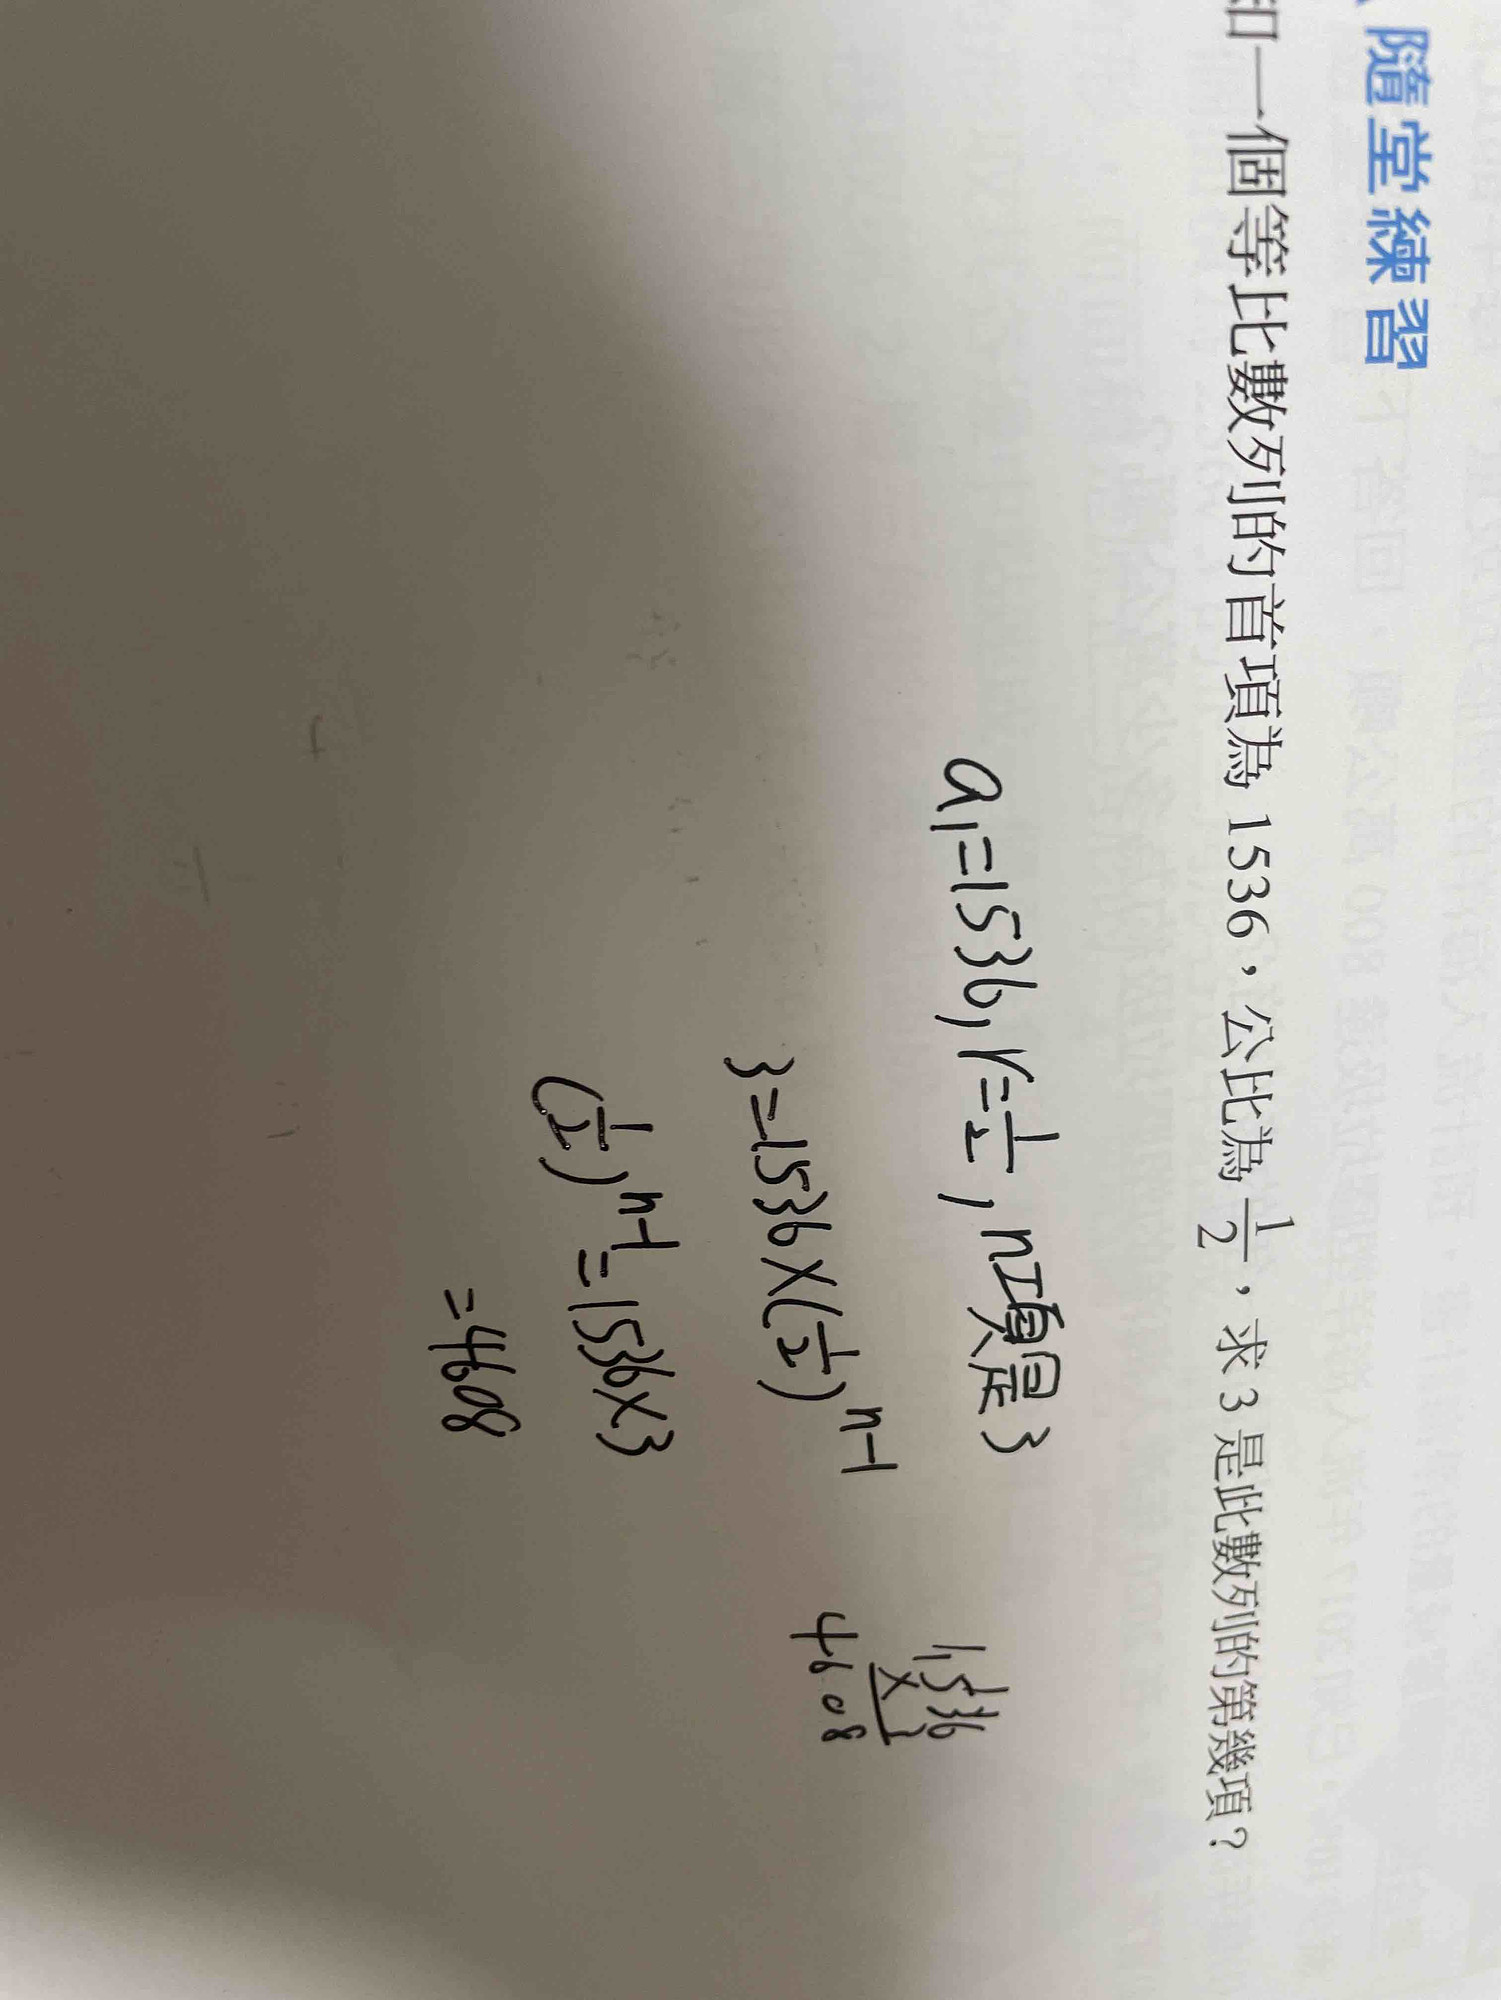 隨堂練習
知一個等比數列的首項為 1536，公比為 1/2，求 3 是此數列的第幾項？
a₁=1536, r=1/2, n項是3
3=1536×(1/2)ⁿ⁻¹
(1/2)ⁿ⁻¹=1536×3
=4608
1536
×3
4608